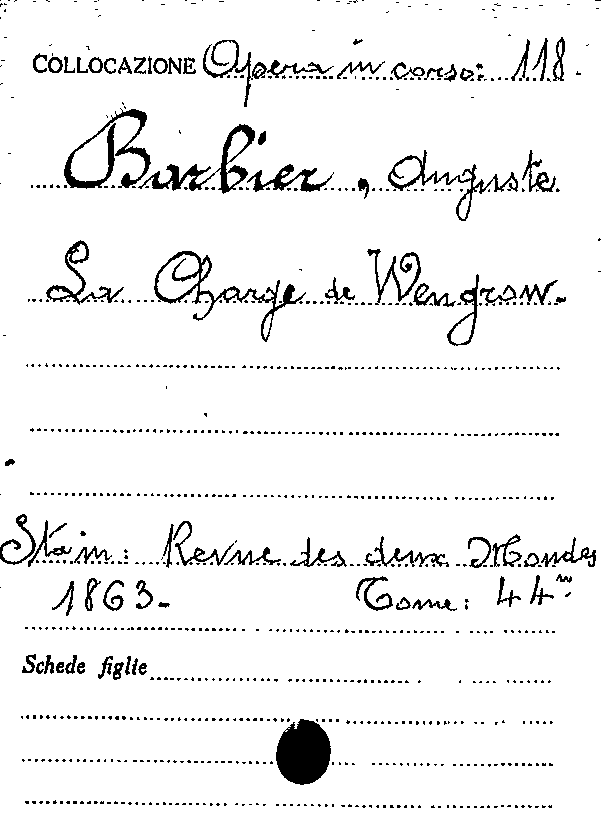 COLLOCAZIONE Opera in corso: 118.
Barbier, Auguste
La Charge de Wengrow.
Sta in: Revue des deux Mondes
1863- Tome: 44ᵐᵉ
Schede figlie